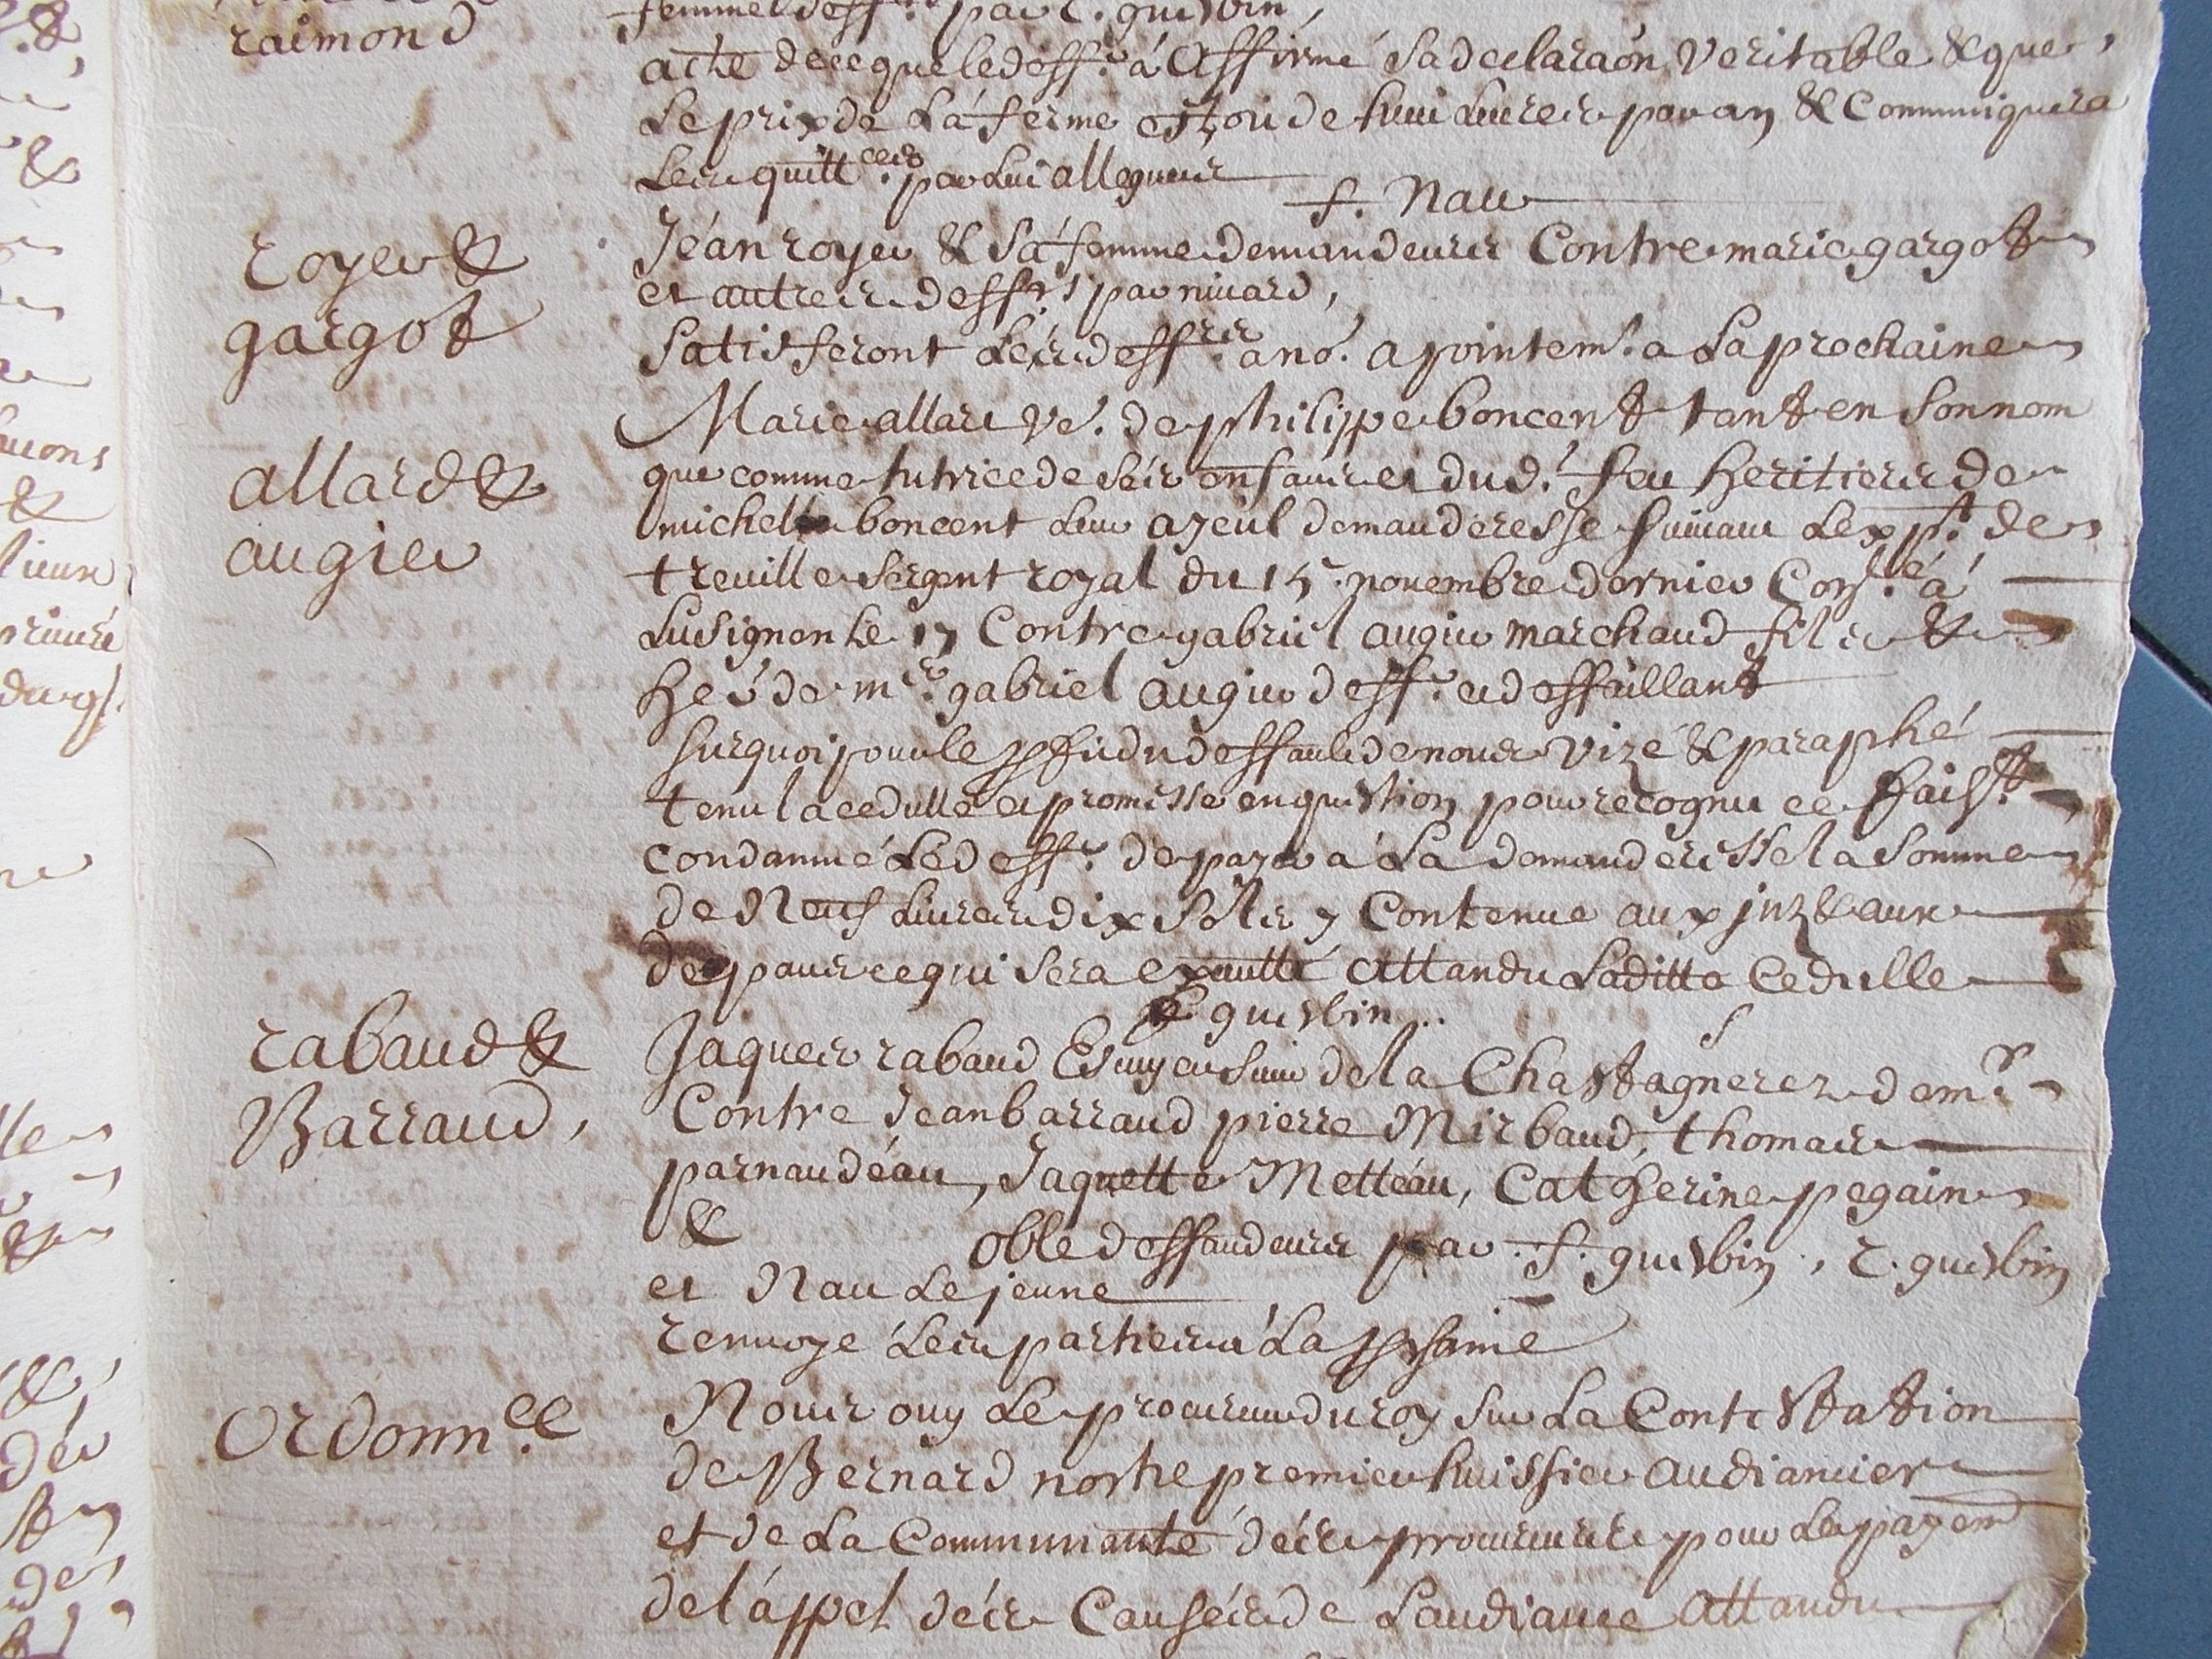 raimond
femme deff.r par C. quisbin,
acte de ce que le deff.r á affirmé sa declaraón veritable & que
Le prix de La ferme est oit de huit Livres par an & Communiquera
Les quitt.ces par Lui alleguees
f. Nau
royer &
gargot
Jéan royer & sa femme demandeurs Contre marie gargot
et autres deff.rs par niuard,
satisferont Les deff.rs a nó. apointem.t a La prochaine
allard &
augier
Marie allart Ve. de philippe boncent tant en son nom
que comme tutrice de ses enfans et dud.t feu Heritiers de
michel boncent Leur ayeul demanderesse suivant Lexp.t de
treuille sergent royal du 15.e nouembre dernier Con.lé á
Lusignen Le 17 Contre gabriel augier marchand fils &
Her de m.re gabriel augier deff.r et deffaillant
surquoi pour le pffit du deffault de nous vizé & paraphé
tenu la cedulle et promisse en question pour recognu ce faist.
condamné Le deff.r de payer a La demanderesse la somme
de Neuf Liures dix sols y Contenue aux jnz & aux
despans ce qui sera exautté attandu Laditte Cedulle
quisbin..
rabaud &
Barraud,
Jaques rabaud Escuyer sieur de la Chastagnerez dem.r
Contre Jean barraud pierre Mirbaud, thomas
parnaudéau, Jaquette Mettéau, Catherine pegain
& oble deffandeurs par f. quisbin, C. quisbin
et Nau Le jeune
renuoye Les parties á La pshaine
Ordonn.ce
Nous ouy Le procureur du roy sur La Contestation
de Bernard nostre premier huissier audiancier
et de La Communauté dés procureurs pour Le payem
de láppel dés Causés de Laudiance attandu